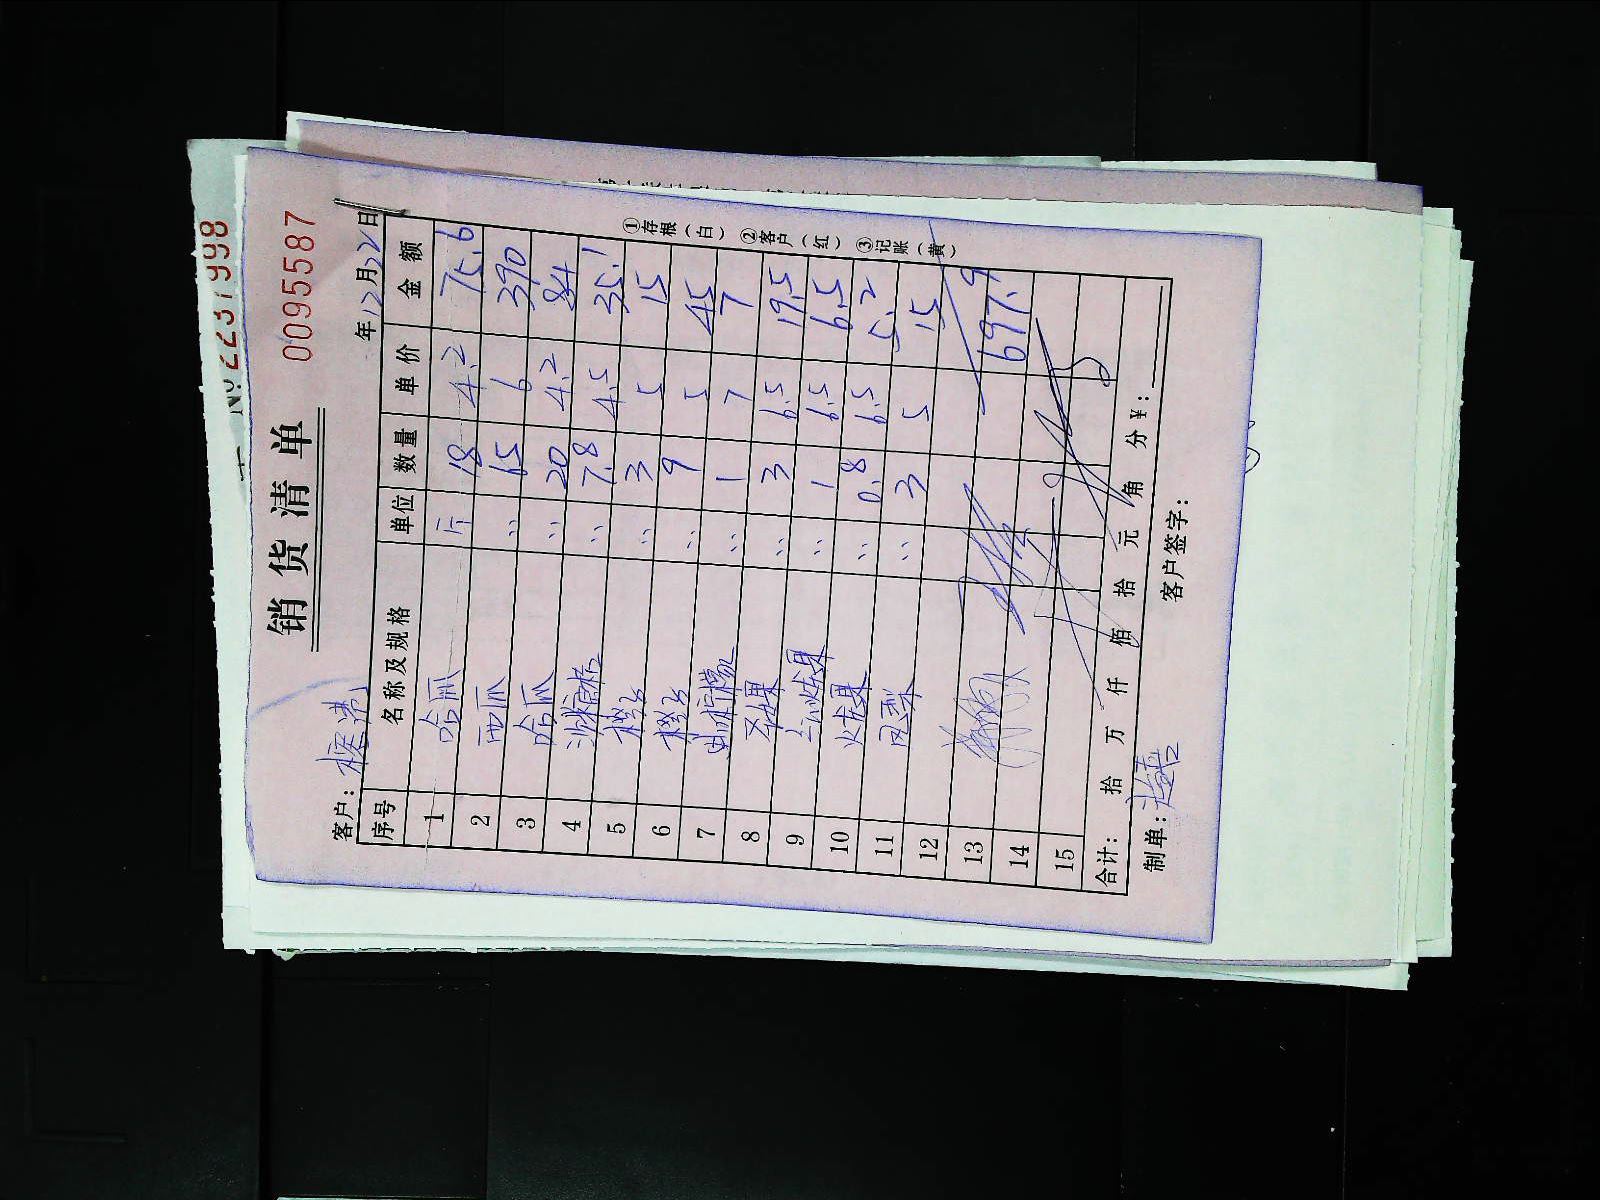 №2237998
销货清单
0095587
客户：
年12月22日
序号 名称及规格 单位 数量 单价 金额
1 哈瓜 斤 18 4.2 75.6
2 西瓜 〃 65 6 390
3 哈瓜 〃 20 4.2 84
4 〃 7.8 4.5 35.1
5 〃 3 5 15
6 〃 9 5 45
7 柠檬 〃 1 7 7
8 果 〃 3 6.5 19.5
9 火龙果 〃 1 6.5 6.5
10 火龙果 〃 0.8 6.5 5.2
11 凤梨 〃 3 5 15
12
13 697.9
14
15
合计： 拾 万 仟 佰 拾 元 角 分 ¥：
制单： 客户签字：
①存根（白） ②客户（红） ③记账（黄）